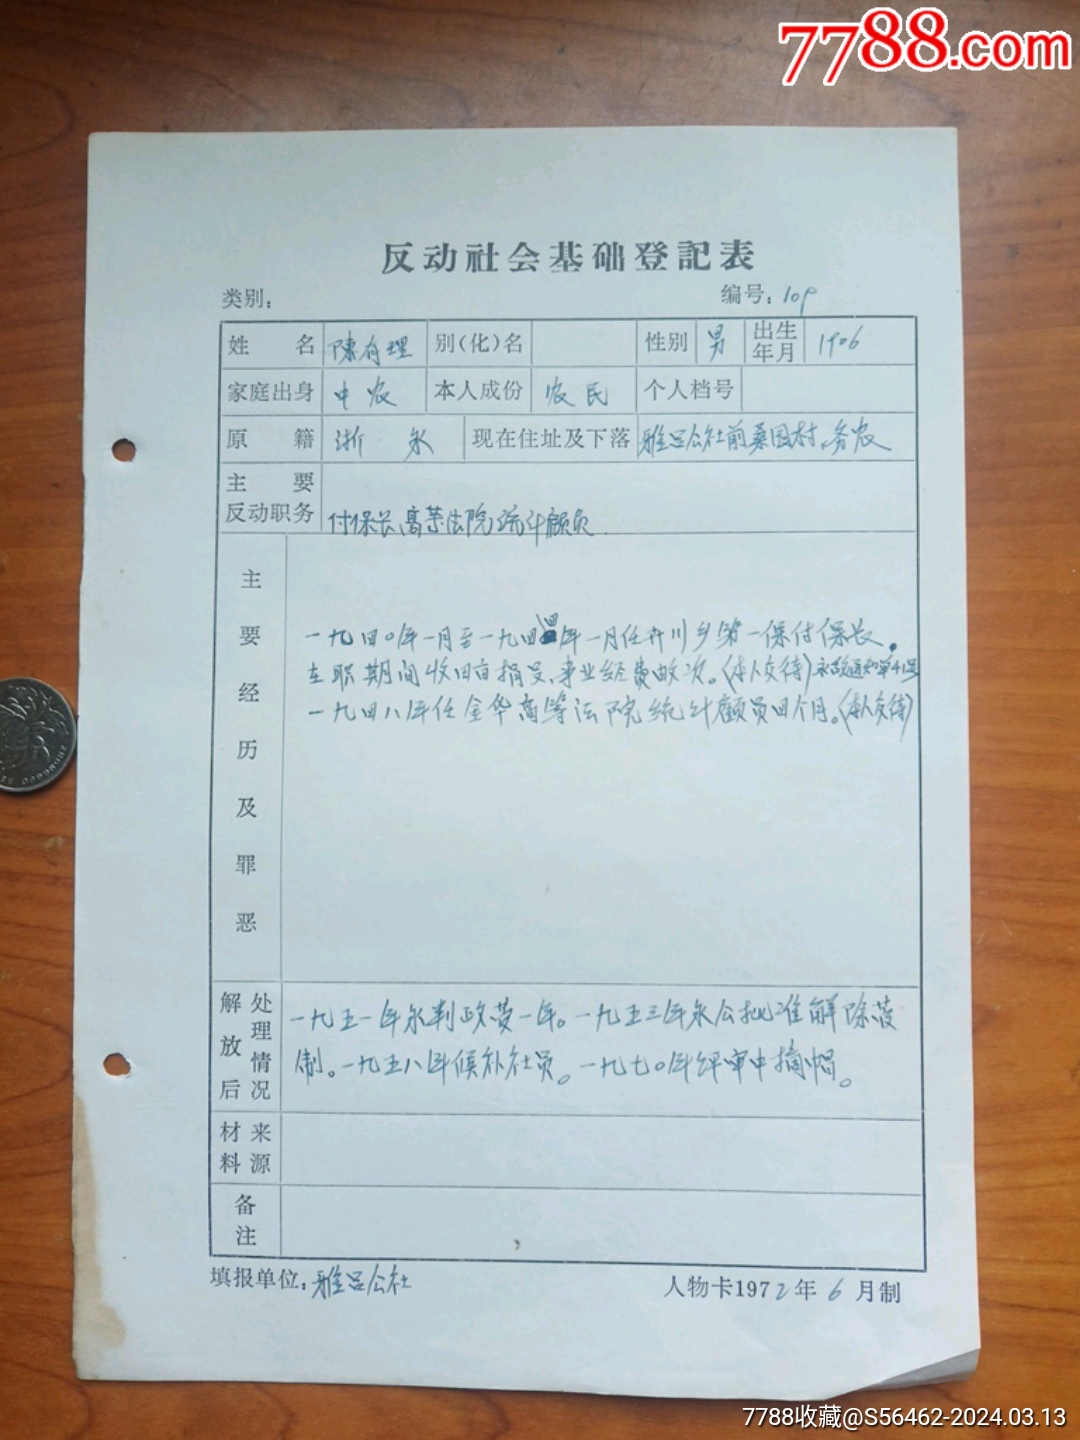 7788.com
反动社会基础登記表
类别：
编号：109
姓名 陳有理 别(化)名 性别 男 出生年月 1906
家庭出身 中农 本人成份 农民 个人档号
原籍 浙 永 现在住址及下落 雅呂公社前桑园村，务农
主要反动职务 付保长高等法院统计顧员.
主要经历及罪恶
一九四〇年一月至一九四四年一月任开川乡第一保付保长。
在职期间收田亩捐兵、事业经费 次。(本人交待)永 通知单
一九四八年任金华高等法院统计顧员四个月。(本人交待)
解放后处理情况
一九五一年永判政营一年。一九五三年永公批准解除营
制。一九五八年候补社员。一九七〇年评审中摘帽。
材料来源
备注
填报单位：雅呂公社
人物卡1972年6月制
7788收藏@S56462-2024.03.13